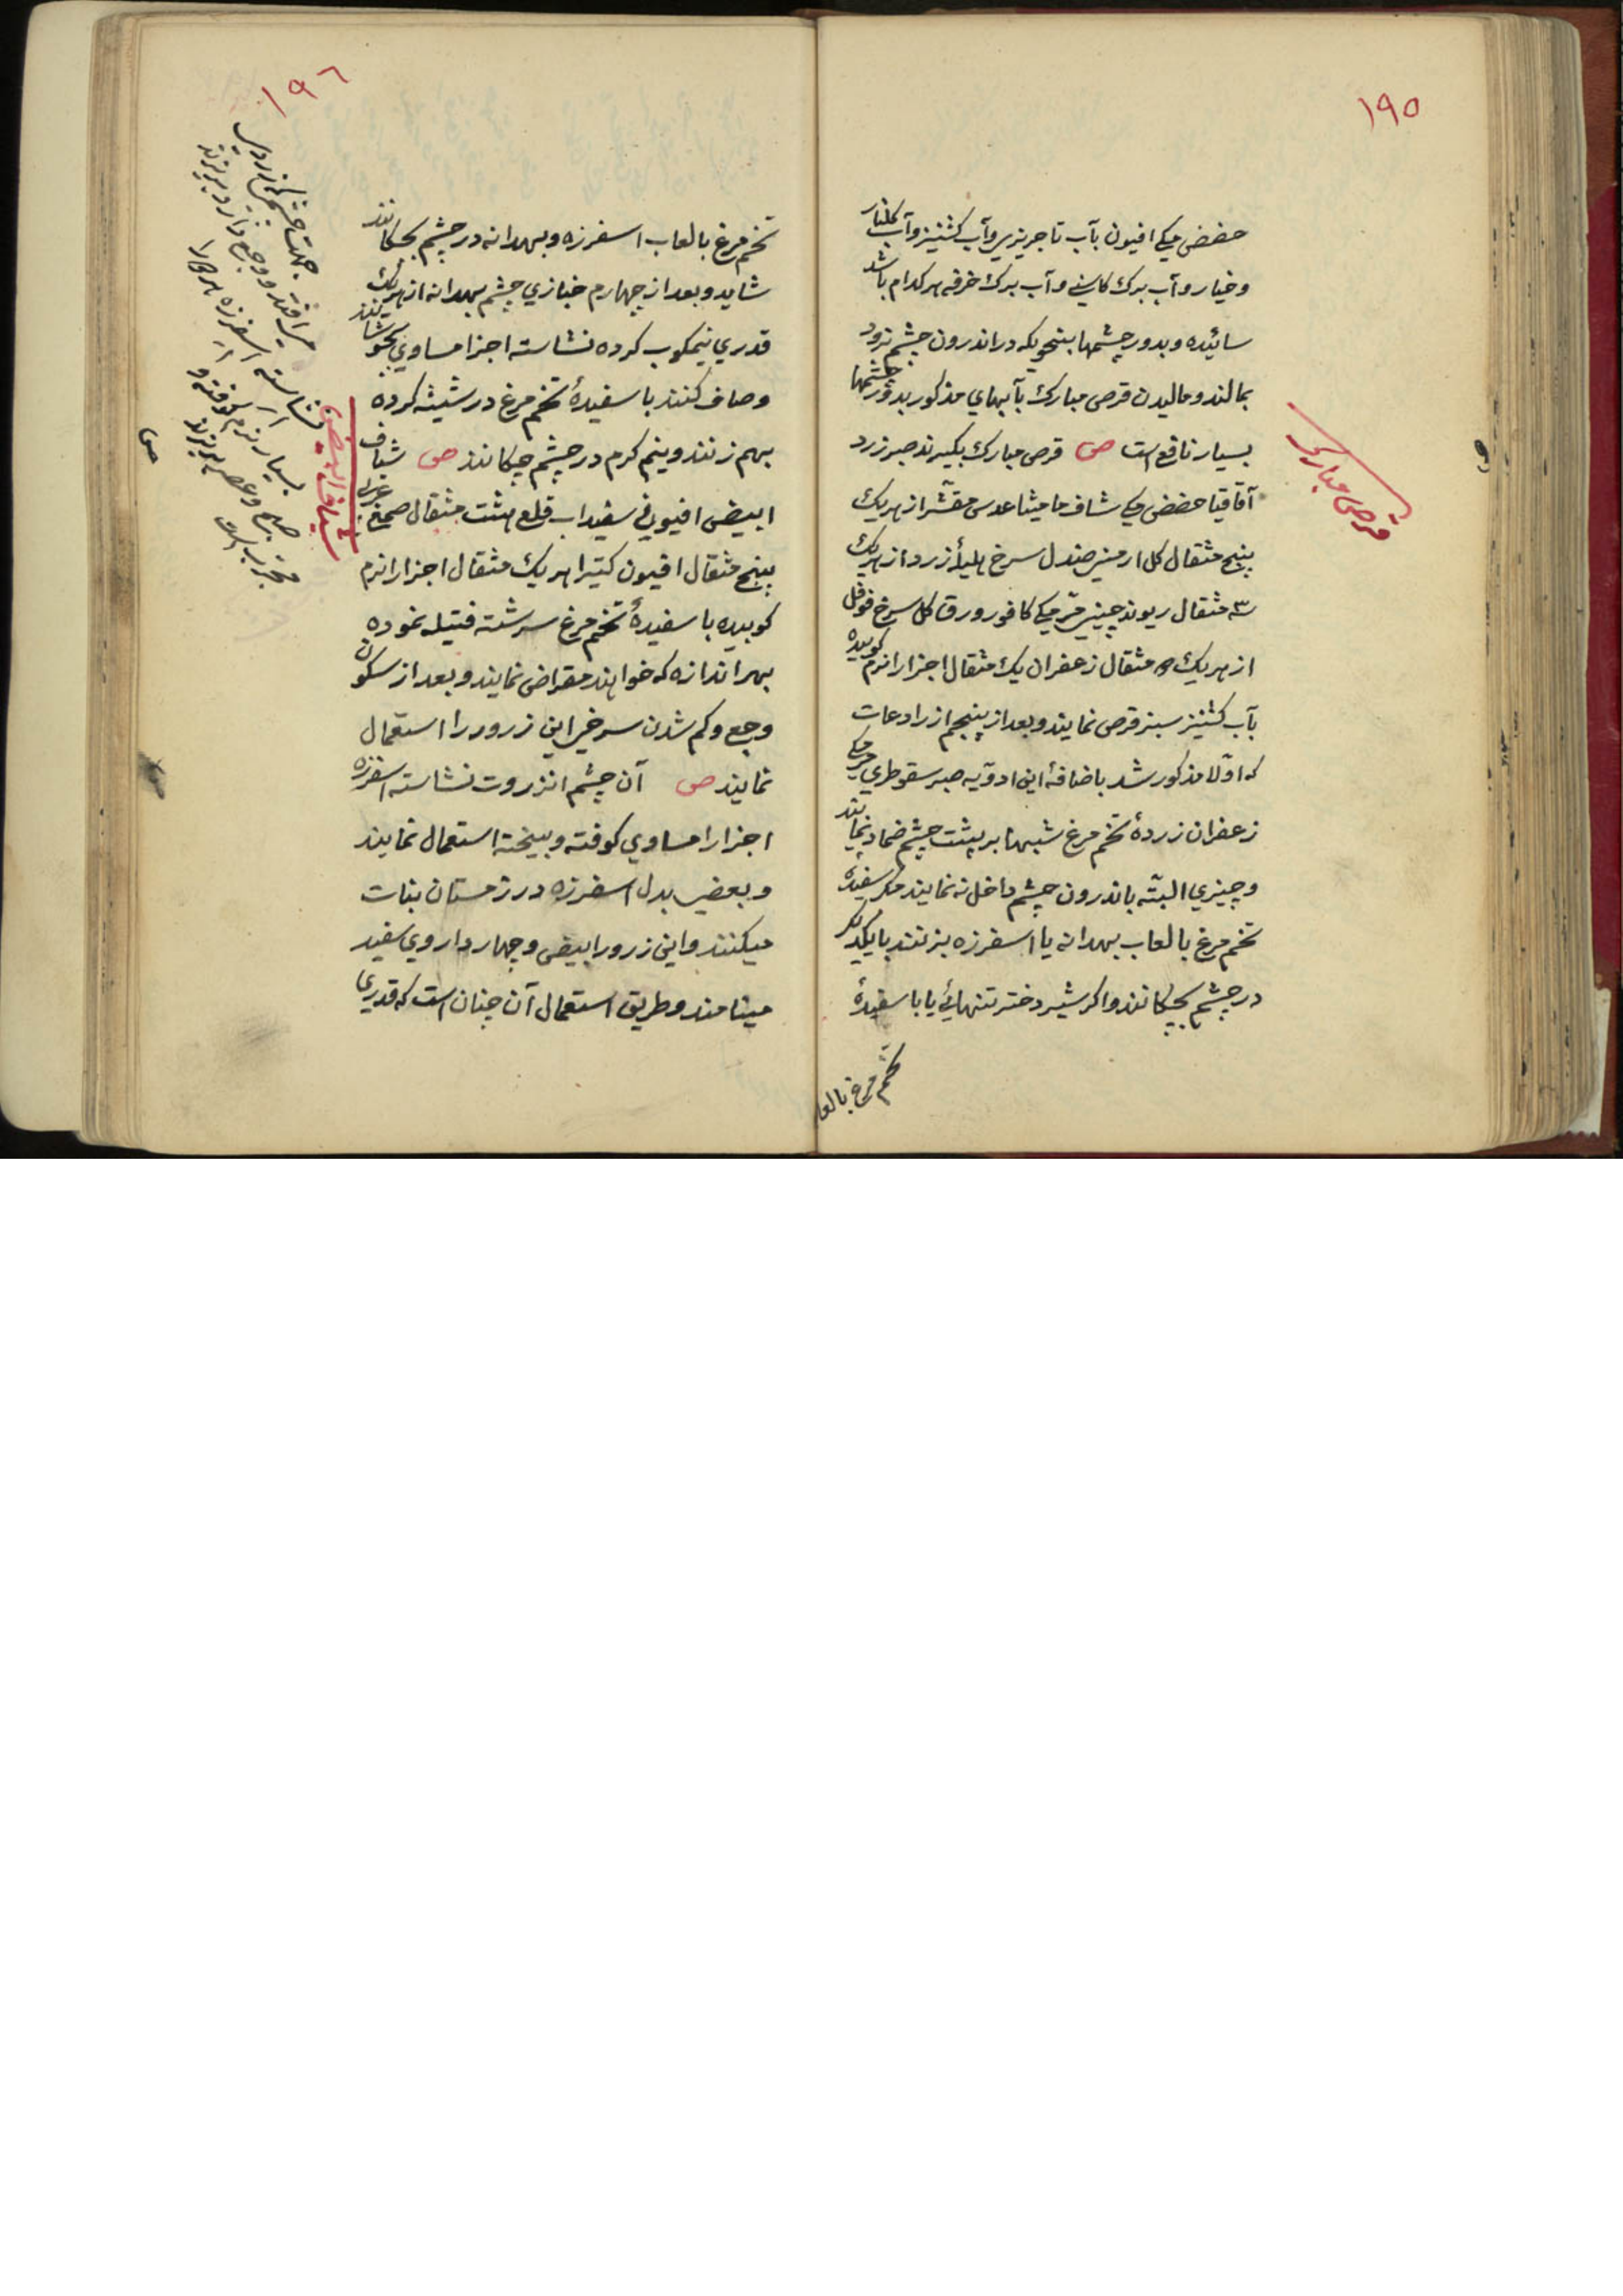 ١٩٥
حضض مکی افیون بآب تاجریزی وآب کشنیز وآب کلنار
وخیار وآب برک کاسنی وآب برک خرفه هر کدام باشد
سائیده وبدور چشمها بنحویکه در اندرون چشم نرود
بمالند ومالیدن قرص مبارک بآبهای مذکور بدور چشمها
بسیار نافع است ص قرص مبارک بکیرند صبر زرد
قرص مبارک
آقاقیا حضض مکی شاف مامیثا عدس مقشّر از هریک
پنج مثقال کل ارمنی صندل سرخ هلیلۀ زرد از هریک
سه مثقال ریوند چینی مرّ مکی کافور ورق کل سرخ فوفل
از هریک مثقال زعفران یک مثقال اجزا را نرم کوبیده
بآب کشنیز سبز قرص نمایند وبعد از پنجم از رادعات
که اوّلا مذکور شد باضافۀ این ادویه صبر سقوطری مرمکی
زعفران زردۀ تخم مرغ شبها بر پشت چشم ضماد نمایند
وچیزی البتّه باندرون چشم داخل نه نمایند مکر سفیدۀ
تخم مرغ بالعاب بهدانه یا اسفرزه بزنند بایکدیکر
در چشم بچکانند واکر شیر دختر تنهائی یا باسفیدۀ
تخم مرغ بالعا
١٩٦
تخم مرغ بالعاب اسفرزه وبهدانه در چشم بچکانند
شاید وبعد از چهارم خبازی چشم بهدانه از هریک
قدری نیمکوب کرده نشاسته اجزا مساوی بجوشانند
وصاف کنند باسفیدۀ تخم مرغ در شیشه کرده
بهم زنند ونیم کرم در چشم چکانند ص شیاف
شیاف ابیض
ابیض افیونی سفیداب قلع هشت مثقال صمغ عربی
پنج مثقال افیون کتیرا هریک مثقال اجزا را نرم
کوبیده باسفیدۀ تخم مرغ سرشته فتیله نموده
بهر اندازه که خواهند مقراض نمایند وبعد از سکون
وجع وکم شدن سرخی این زرور را استعمال
نمایند ص آن چشم انزروت نشاسته اسفرزه
اجزا را مساوی کوفته وبیخته استعمال نمایند
وبعضی بدل اسفرزه در زمستان نبات
میکنند واین زرور ابیض وچهار داروی سفید
مینامند وطریق استعمال آن چنان است که قدری
نشاسته اسفرزه
بسیار نرم کوفته و
صبح وعصر بریزند
مجرب است